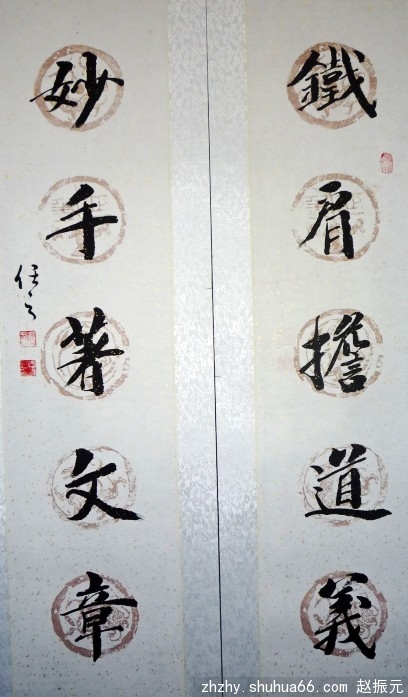 鐵肩擔道義
妙手著文章
zhzhy.shuhua66.com 赵振元